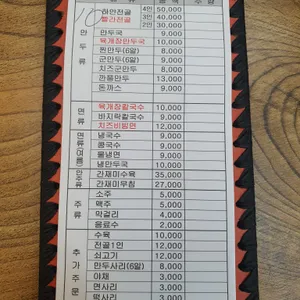 하얀전골 4인 50,000
빨간전골 3인 40,000
2인 30,000
만두류
만두국 9,000
육개장만두국 10,000
찐만두(6알) 9,000
군만두(6알) 9,000
치즈군만두 9,000
깐풍만두 13,000
돈까스 9,000
면류
육개장칼국수 10,000
바지락칼국수 9,000
치즈비빔면 12,000
면류(여름)
냉국수 9,000
콩국수 9,000
물냉면 9,000
냉만두국 10,000
안주류
간재미수육 35,000
간재미무침 27,000
주류
소주 5,000
맥주 5,000
막걸리 4,000
음료수 2,000
추가주문
수육 10,000
전골1인 12,000
쇠고기 12,000
만두사리(6알) 8,000
야채 3,000
면사리 3,000
떡사리 3,000